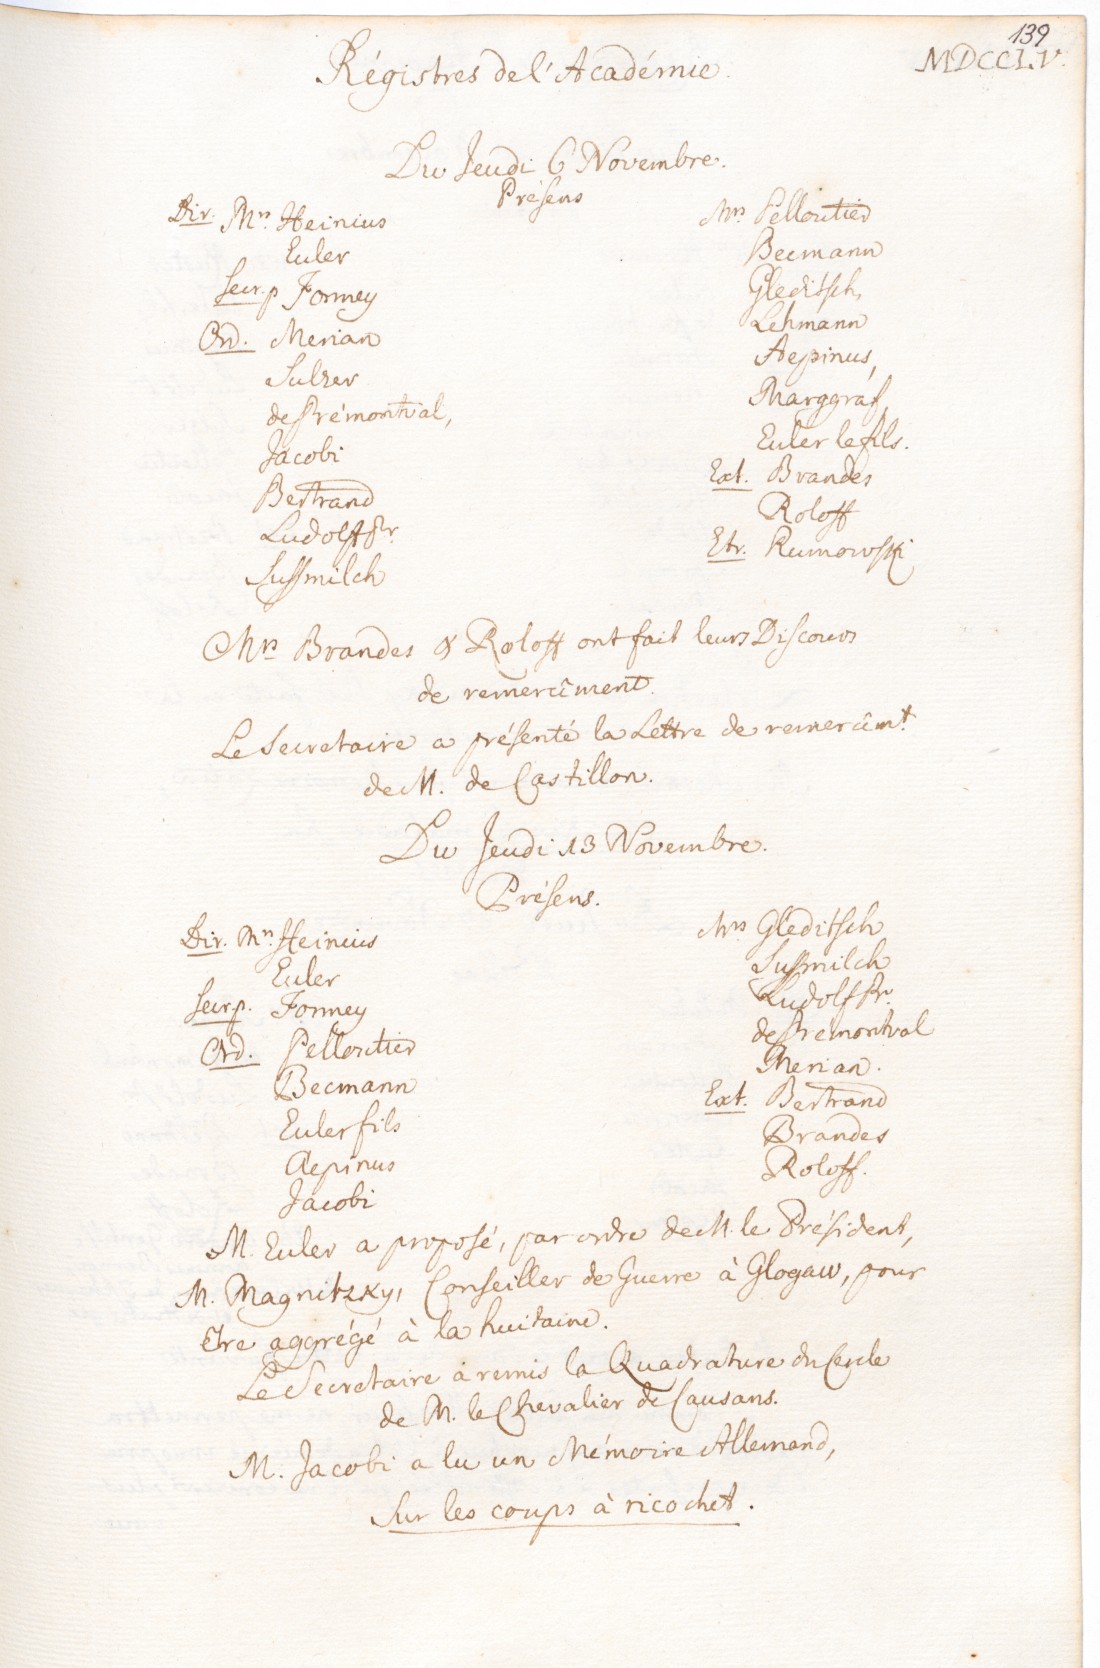 139
Régistres de l'Académie.
MDCCLV.
Du Jeudi 6 Novembre.
Présens
Dir. Mrs Heinius
Euler
Secr. p Formey
Ord. Merian
Sulzer
de Prémontval,
Jacobi
Bertrand
Ludolff Pr.
Sussmilch
Mrs Pelloutier
Becmann
Gleditsch,
Lehmann
Aepinus,
Marggraf,
Euler le fils.
Ext. Brandes
Roloff
Etr. Rumowski
Mrs Brandes & Roloff ont fait leurs Discours
de remercîment.
Le Secretaire a présenté la Lettre de remercîmt.
de M. de Castillon.
Du Jeudi 13 Novembre.
Présens.
Dir. Mrs Heinius
Euler
Secr p. Formey
Ord. Pelloutier
Becmann
Euler fils
Aepinus
Jacobi
Mrs Gleditsch
Sussmilch
Ludolff Pr.
de Premontval
Merian.
Ext. Bertrand
Brandes
Roloff.
M. Euler a proposé, par ordre de M. le Président,
M. Magnitzky, Conseiller de Guerre à Glogaw, pour
etre aggrégé à la huitaine.
Le Secretaire a remis la Quadrature du Cercle
de M. le Chevalier de Causans.
M. Jacobi a lu un Mémoire Allemand,
Sur les coups à ricochet.